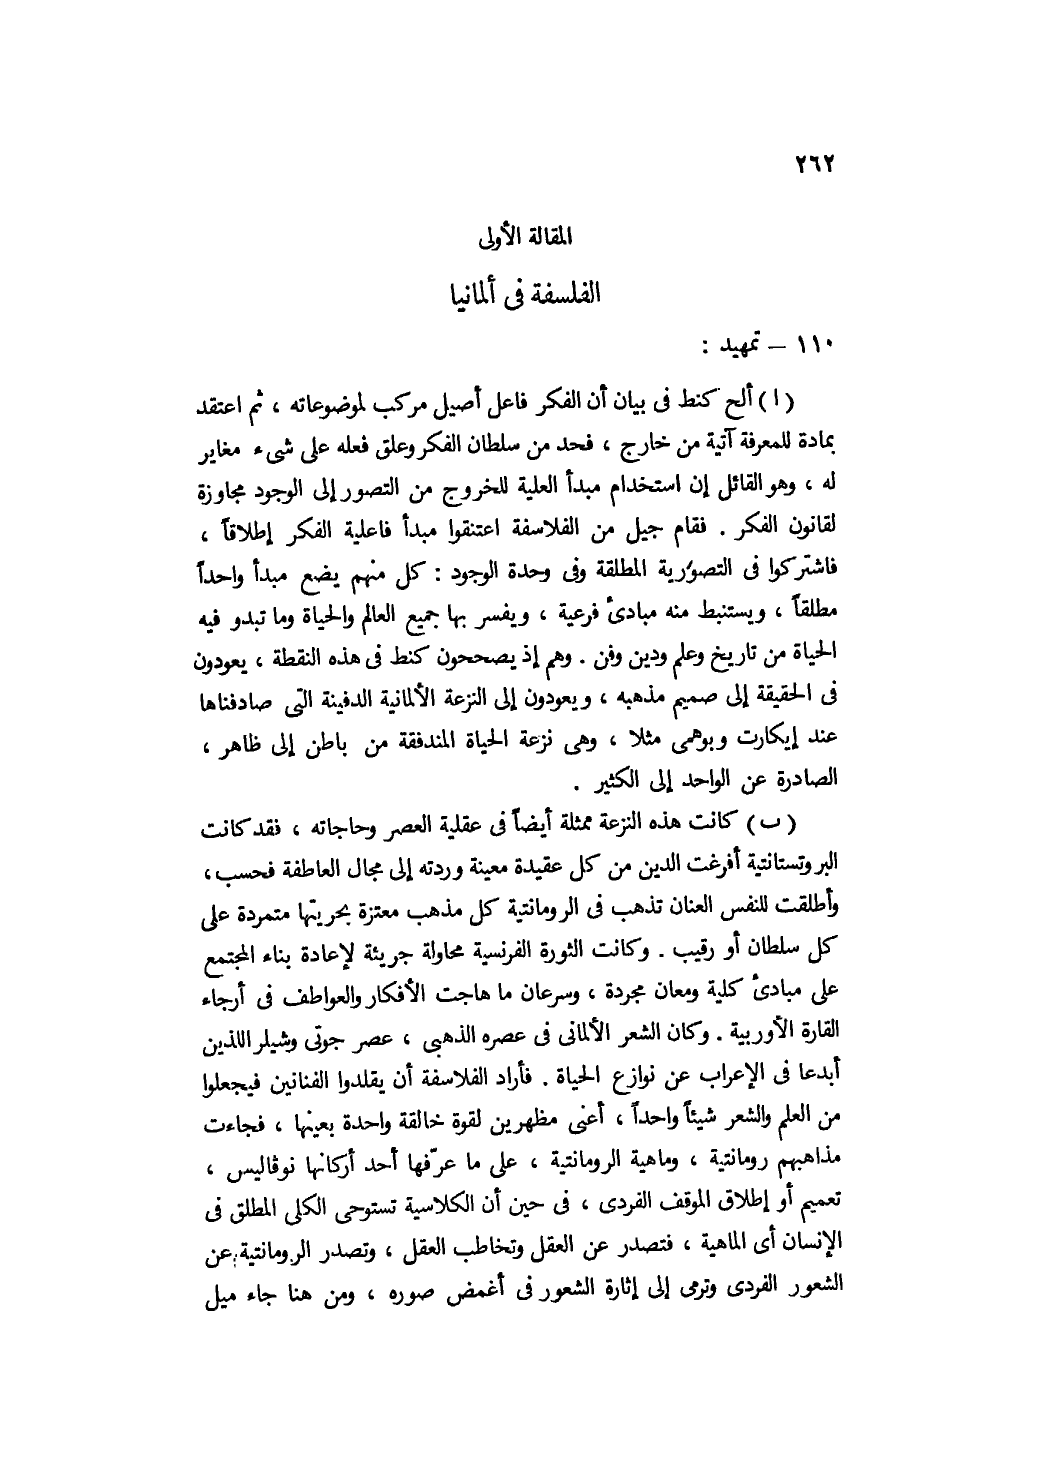 ٢٦٢
المقالة الأولى
الفلسفة فى ألمانيا
١١٠ — تمهيد :
( ا ) ألح كنط فى بيان أن الفكر فاعل أصيل مركب لموضوعاته ، ثم اعتقد
بمادة للمعرفة آتية من خارج ، فحد من سلطان الفكر وعلق فعله على شىء مغاير
له ، وهو القائل إن استخدام مبدأ العلية للخروج من التصور إلى الوجود مجاوزة
لقانون الفكر . فقام جيل من الفلاسفة اعتنقوا مبدأ فاعلية الفكر إطلاقاً ،
فاشتركوا فى التصورية المطلقة وفى وحدة الوجود : كل منهم يضع مبدأ واحداً
مطلقاً ، ويستنبط منه مبادئ فرعية ، ويفسر بها جميع العالم والحياة وما تبدو فيه
الحياة من تاريخ وعلم ودين وفن . وهم إذ يصححون كنط فى هذه النقطة ، يعودون
فى الحقيقة إلى صميم مذهبه ، ويعودون إلى النزعة الألمانية الدفينة التى صادفناها
عند إيكارت وبوهمى مثلا ، وهى نزعة الحياة المندفقة من باطن إلى ظاهر ،
الصادرة عن الواحد إلى الكثير .
( ب ) كانت هذه النزعة ممثلة أيضاً فى عقلية العصر وحاجاته ، فقد كانت
البروتستانتية أفرغت الدين من كل عقيدة معينة وردته إلى مجال العاطفة فحسب ،
وأطلقت للنفس العنان تذهب فى الرومانتية كل مذهب معتزة بحريتها متمردة على
كل سلطان أو رقيب . وكانت الثورة الفرنسية محاولة جريئة لإعادة بناء المجتمع
على مبادئ كلية ومعان مجردة ، وسرعان ما هاجت الأفكار والعواطف فى أرجاء
القارة الأوربية . وكان الشعر الألمانى فى عصره الذهبى ، عصر جوتى وشيلر اللذين
أبدعا فى الإعراب عن نوازع الحياة . فأراد الفلاسفة أن يقلدوا الفنانين فيجعلوا
من العلم والشعر شيئاً واحداً ، أعنى مظهرين لقوة خالقة واحدة بعينها ، فجاءت
مذاهبهم رومانتية ، وماهية الرومانتية ، على ما عرّفها أحد أركانها نوڤاليس ،
تعميم أو إطلاق الموقف الفردى ، فى حين أن الكلاسية تستوحى الكلى المطلق فى
الإنسان أى الماهية ، فتصدر عن العقل وتخاطب العقل ، وتصدر الرومانتية عن
الشعور الفردى وترمى إلى إثارة الشعور فى أغمض صوره ، ومن هنا جاء ميل